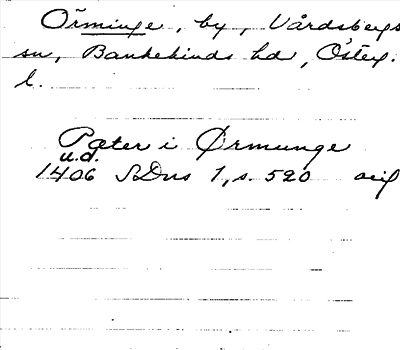 Örminge, by, Vårdsbergs
sn, Bankekinds hd, Östeg.
l.
Pæter i Ørmunge
u.d.
1406 SDns 1, s. 520 avig